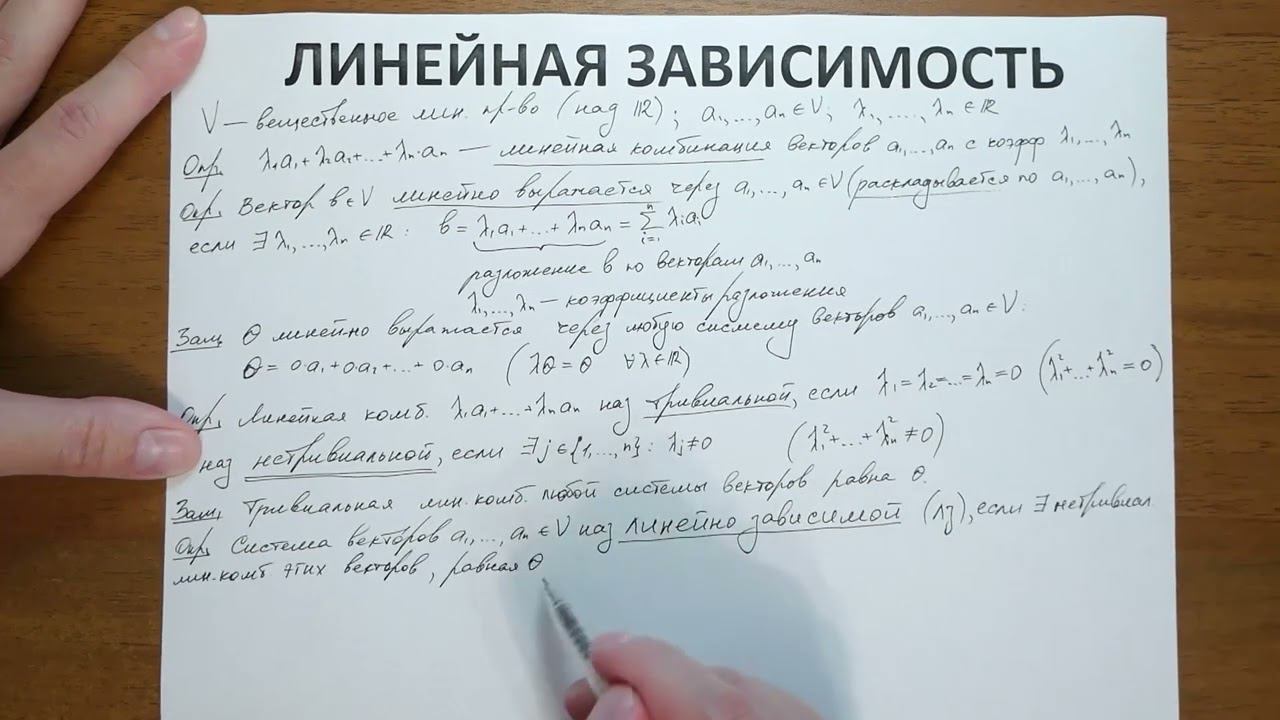 ЛИНЕЙНАЯ ЗАВИСИМОСТЬ
V — вещественное лин. пр-во (над ℝ); a₁,...,aₙ ∈ V; λ₁,....,λₙ ∈ ℝ
Опр. λ₁a₁+λ₂a₂+...+λₙ·aₙ — линейная комбинация векторов a₁,...,aₙ с коэфф λ₁,...,λₙ
Опр. Вектор b∈V линейно выражается через a₁,...,aₙ ∈ V (раскладывается по a₁,...,aₙ),
если ∃ λ₁,...,λₙ ∈ ℝ: b = λ₁a₁+...+λₙaₙ = ∑ᵢ₌₁ⁿ λᵢaᵢ
разложение b по векторам a₁,...,aₙ
λ₁,...,λₙ — коэффициенты разложения
Зам. θ линейно выражается через любую систему векторов a₁,...,aₙ ∈ V:
θ = 0·a₁+0a₂+...+0·aₙ (λθ = θ ∀λ∈ℝ)
Опр. Линейная комб. λ₁a₁+...+λₙaₙ наз тривиальной, если λ₁=λ₂=...=λₙ=0 (λ₁²+...+λₙ²=0)
наз нетривиальной, если ∃j∈{1,...,n}: λⱼ≠0 (λ₁²+...+λₙ²≠0)
Зам. Тривиальная лин.комб. любой системы векторов равна θ.
Опр. Система векторов a₁,...,aₙ ∈ V наз линейно зависимой (лз), если ∃ нетривиал.
лин.комб этих векторов, равная θ